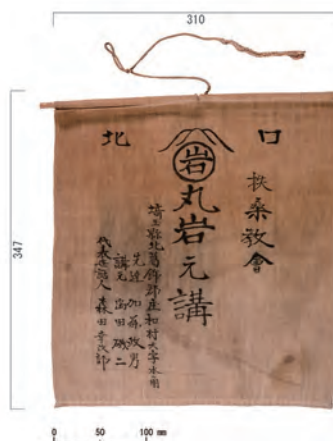 310
347
北 口
扶桑教會
岩
丸岩元講
埼玉縣北葛飾郡庄和村大字水角
先達 加藤政男
講元 田磯二
代表世話人 森田幸次郎
0 50 100 mm